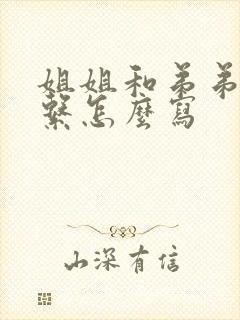 姐姐和弟弟
繫怎麼寫
山深有信